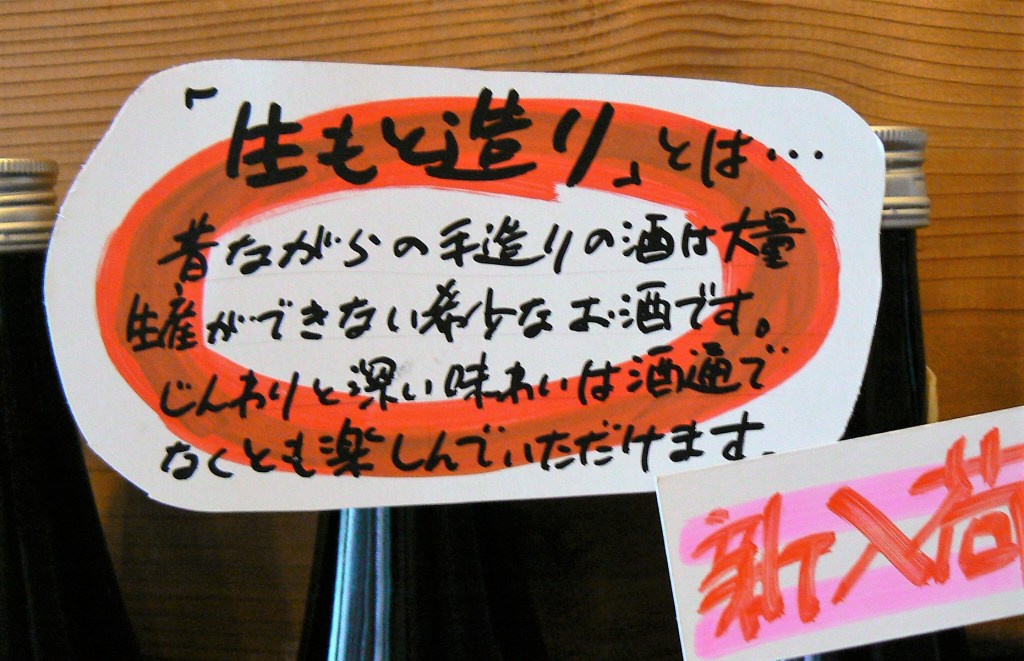 「生もと造り」とは…
昔ながらの手造りの酒は大量
生産ができない希少なお酒です。
じんわりと深い味わいは酒通で
なくとも楽しんでいただけます。
新入荷